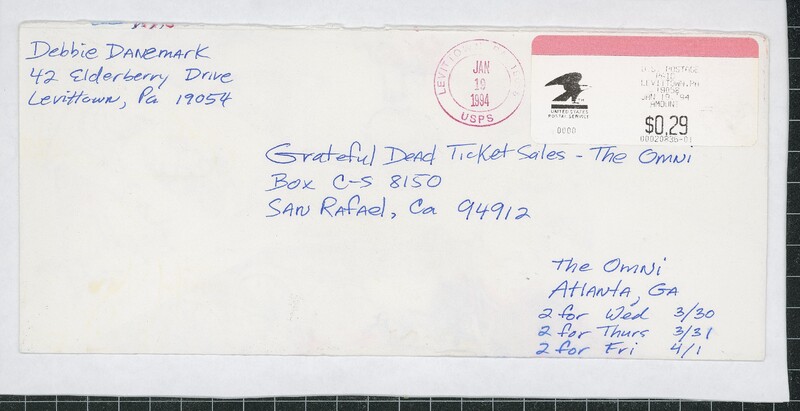 Debbie Danemark
42 Elderberry Drive
Levittown, Pa 19054
LEVITTOWN
JAN
19
1994
USPS
UNITED STATES
POSTAL SERVICE
0000
U.S. POSTAGE
PAID
LEVITTOWN, PA
JAN 19, 94
AMOUNT
$0.29
00020836-01
Grateful Dead Ticket Sales - The Omni
Box C-S 8150
San Rafael, Ca 94912
The Omni
Atlanta, GA
2 for Wed 3/30
2 for Thurs 3/31
2 for Fri 4/1